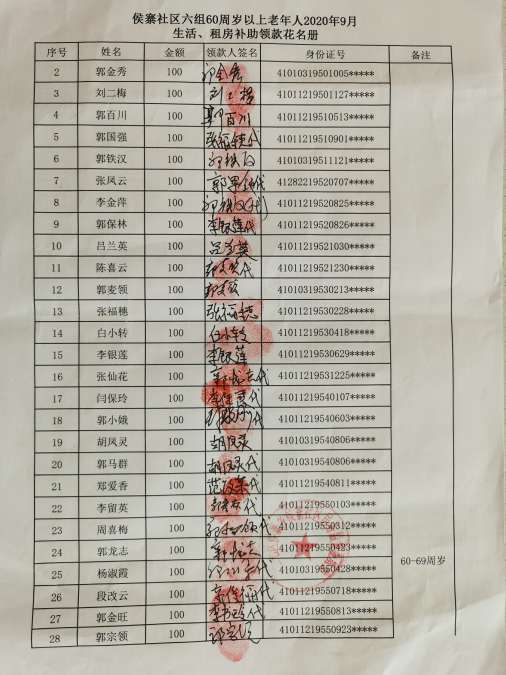 侯寨社区六组60周岁以上老年人2020年9月
生活、租房补助领款花名册
序号 姓名 金额 领款人签名 身份证号 备注
2 郭金秀 100 郭金秀 41010319501005*****
3 刘二梅 100 41011219501127*****
4 郭百川 100 郭百川 41011219510513*****
5 郭国强 100 41011219510901*****
6 郭铁汉 100 41010319511121*****
7 张凤云 100 41282219520707*****
8 李金萍 100 41011219520825*****
9 郭保林 100 李银莲代 41011219520826*****
10 吕兰英 100 吕兰英 41011219521030*****
11 陈喜云 100 41011219521230*****
12 郭麦领 100 41010319530213*****
13 张福穗 100 张福穗 41011219530228*****
14 白小转 100 白小转 41011219530418*****
15 李银莲 100 李银莲 41011219530629*****
16 张仙花 100 41011219531225*****
17 闫保玲 100 41011219540107*****
18 郭小娥 100 41011219540603*****
19 胡凤灵 100 胡凤灵 41010319540806*****
20 郭马群 100 胡凤灵代 41010319540806*****
21 郑爱香 100 41011219540811*****
22 李留英 100 41011219550103*****
23 周喜梅 100 41011219550312*****
24 郭龙志 100 41011219550423*****
25 杨淑霞 100 41010319550428***** 60-69周岁
26 段改云 100 41011219550718*****
27 郭金旺 100 41011219550813*****
28 郭宗领 100 41011219550923*****